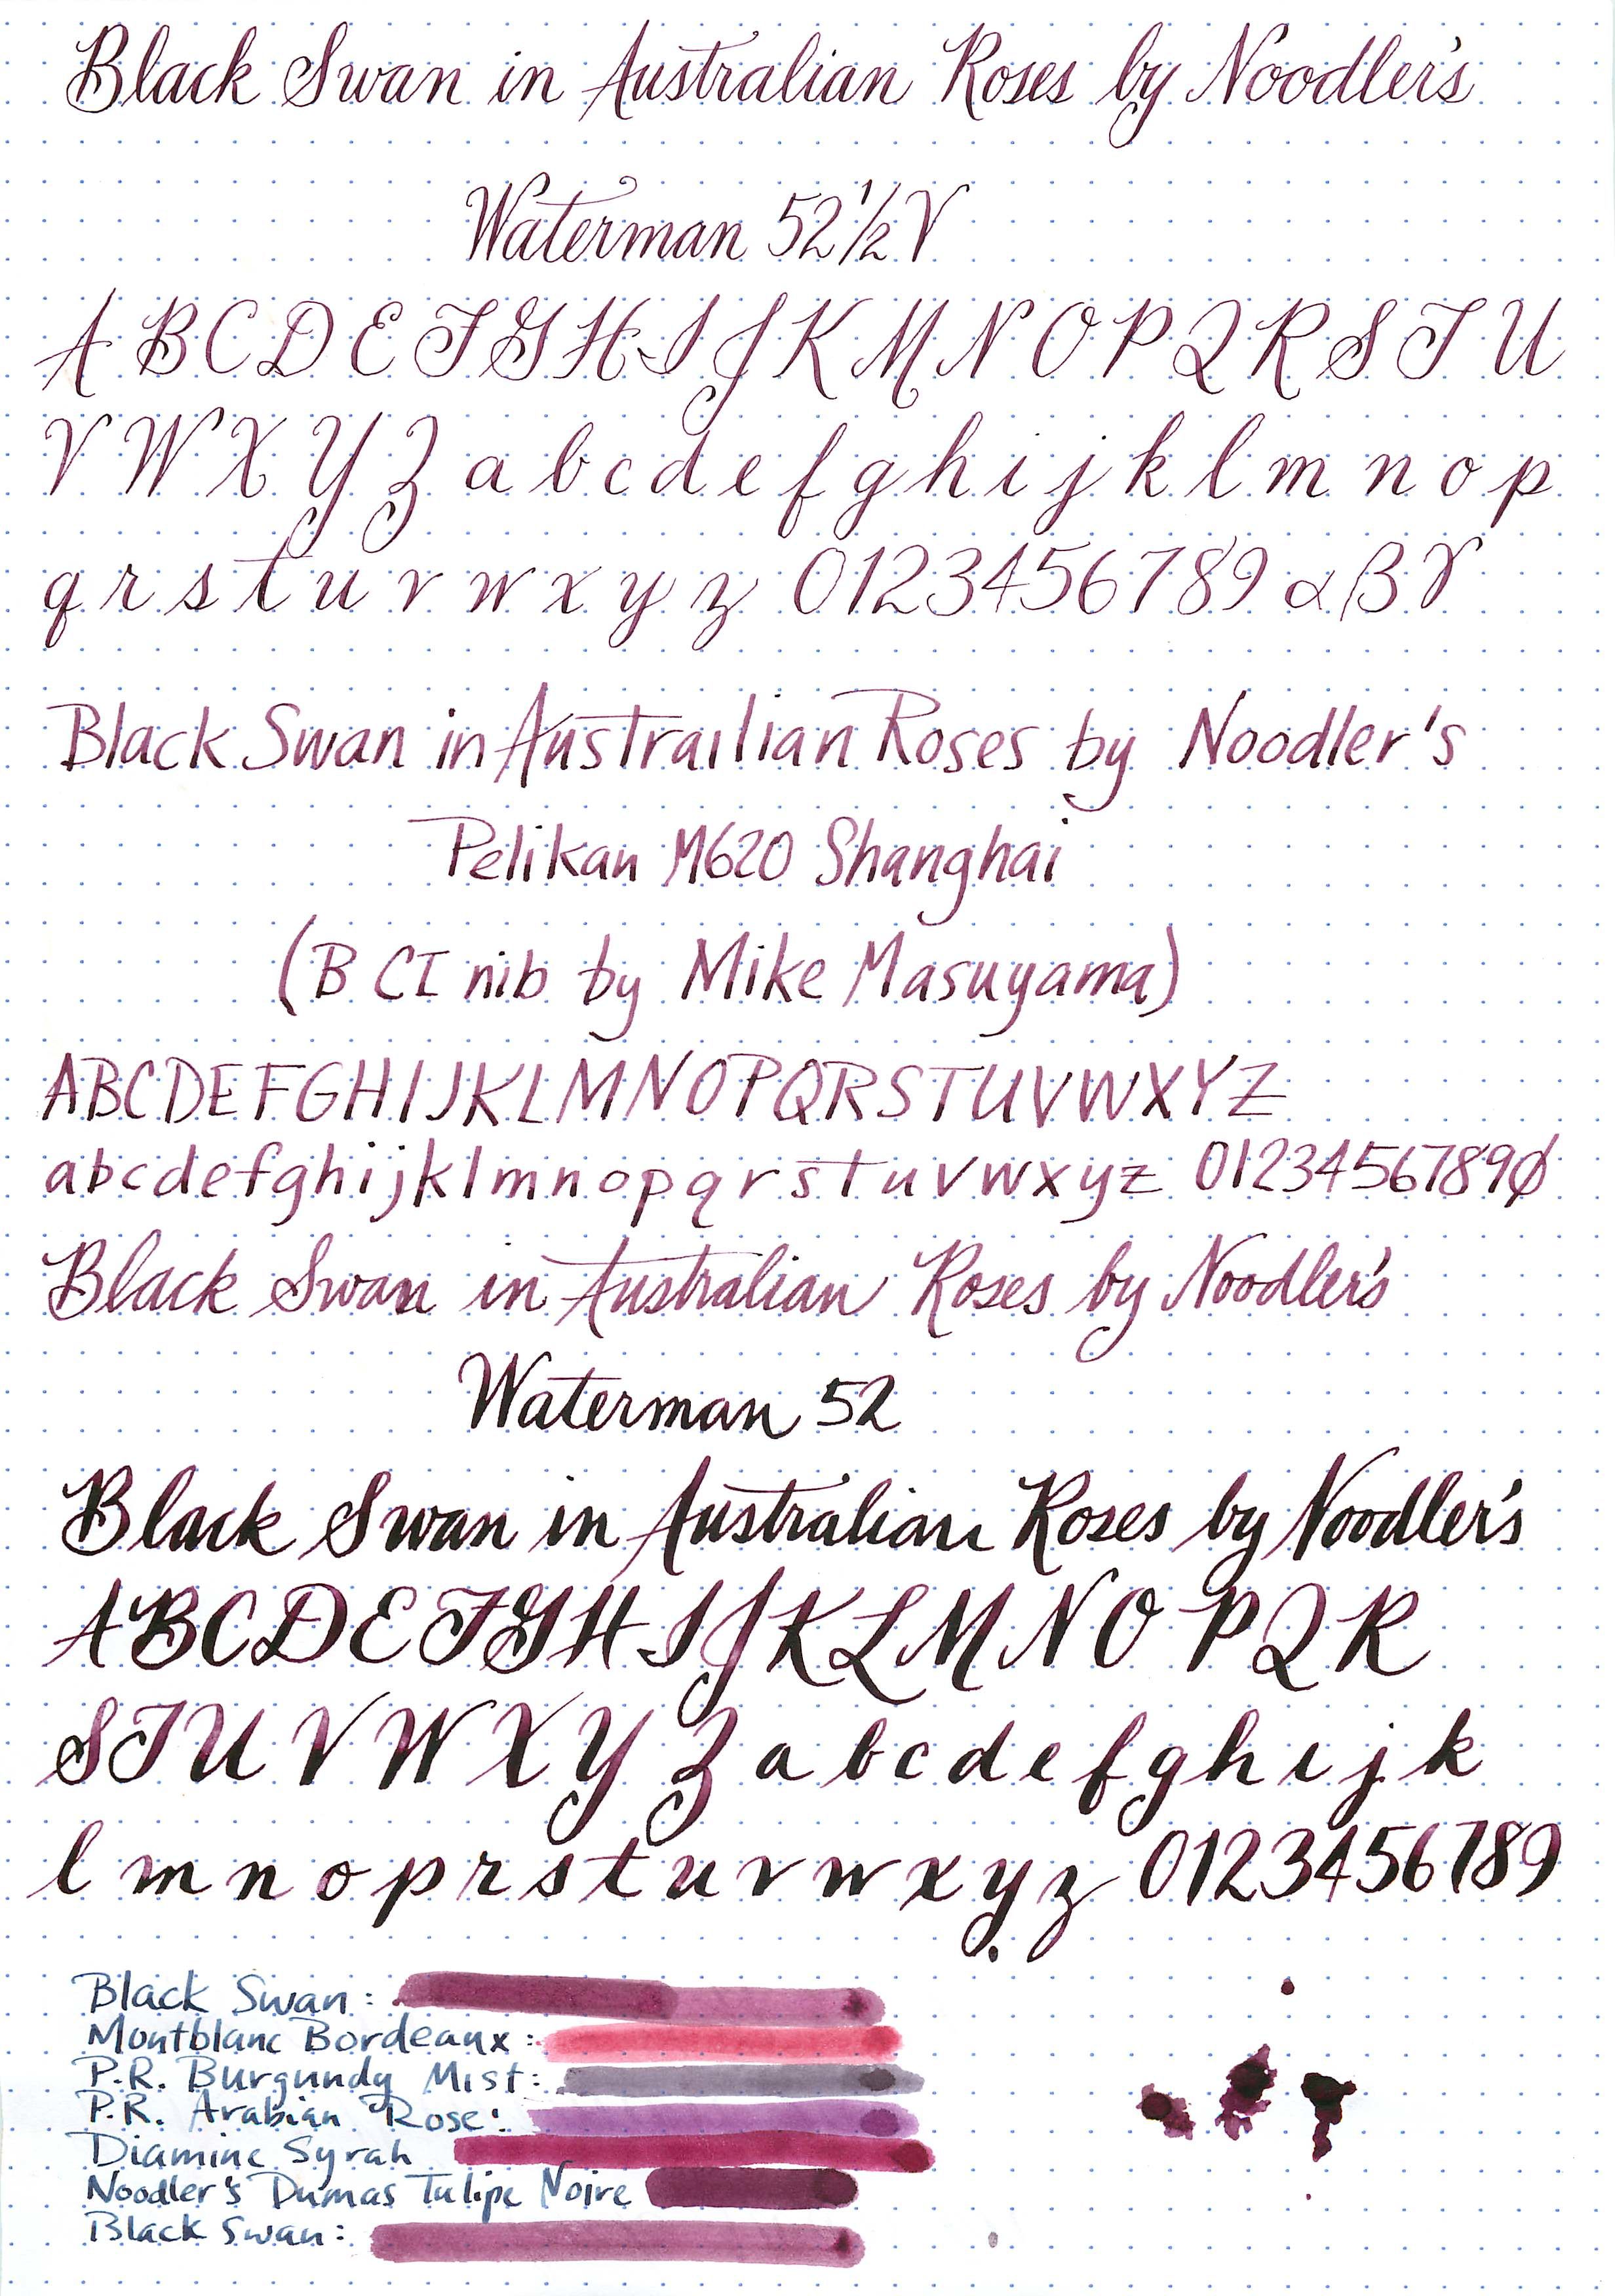 Black Swan in Australian Roses by Noodler's
Waterman 52 1/2 V
A B C D E F G H I J K M N O P Q R S T U
V W X Y Z a b c d e f g h i j k l m n o p
q r s t u v w x y z 0123456789 α β γ
Black Swan in Austrailian Roses by Noodler's
Pelikan M620 Shanghai
(B CI nib by Mike Masuyama)
ABCDEFGHIJKLMNOPQRSTUVWXYZ
abcdefghijklmnopqrstuvwxyz 0123456789Ø
Black Swan in Australian Roses by Noodler's
Waterman 52
Black Swan in Australian Roses by Noodler's
A B C D E F G H I J K L M N O P Q R
S T U V W X Y Z a b c d e f g h i j k
l m n o p r s t u v w x y z 0123456789
Black Swan:
Montblanc Bordeaux:
P.R. Burgundy Mist:
P.R. Arabian Rose:
Diamine Syrah
Noodler's Dumas Tulipe Noire
Black Swan: